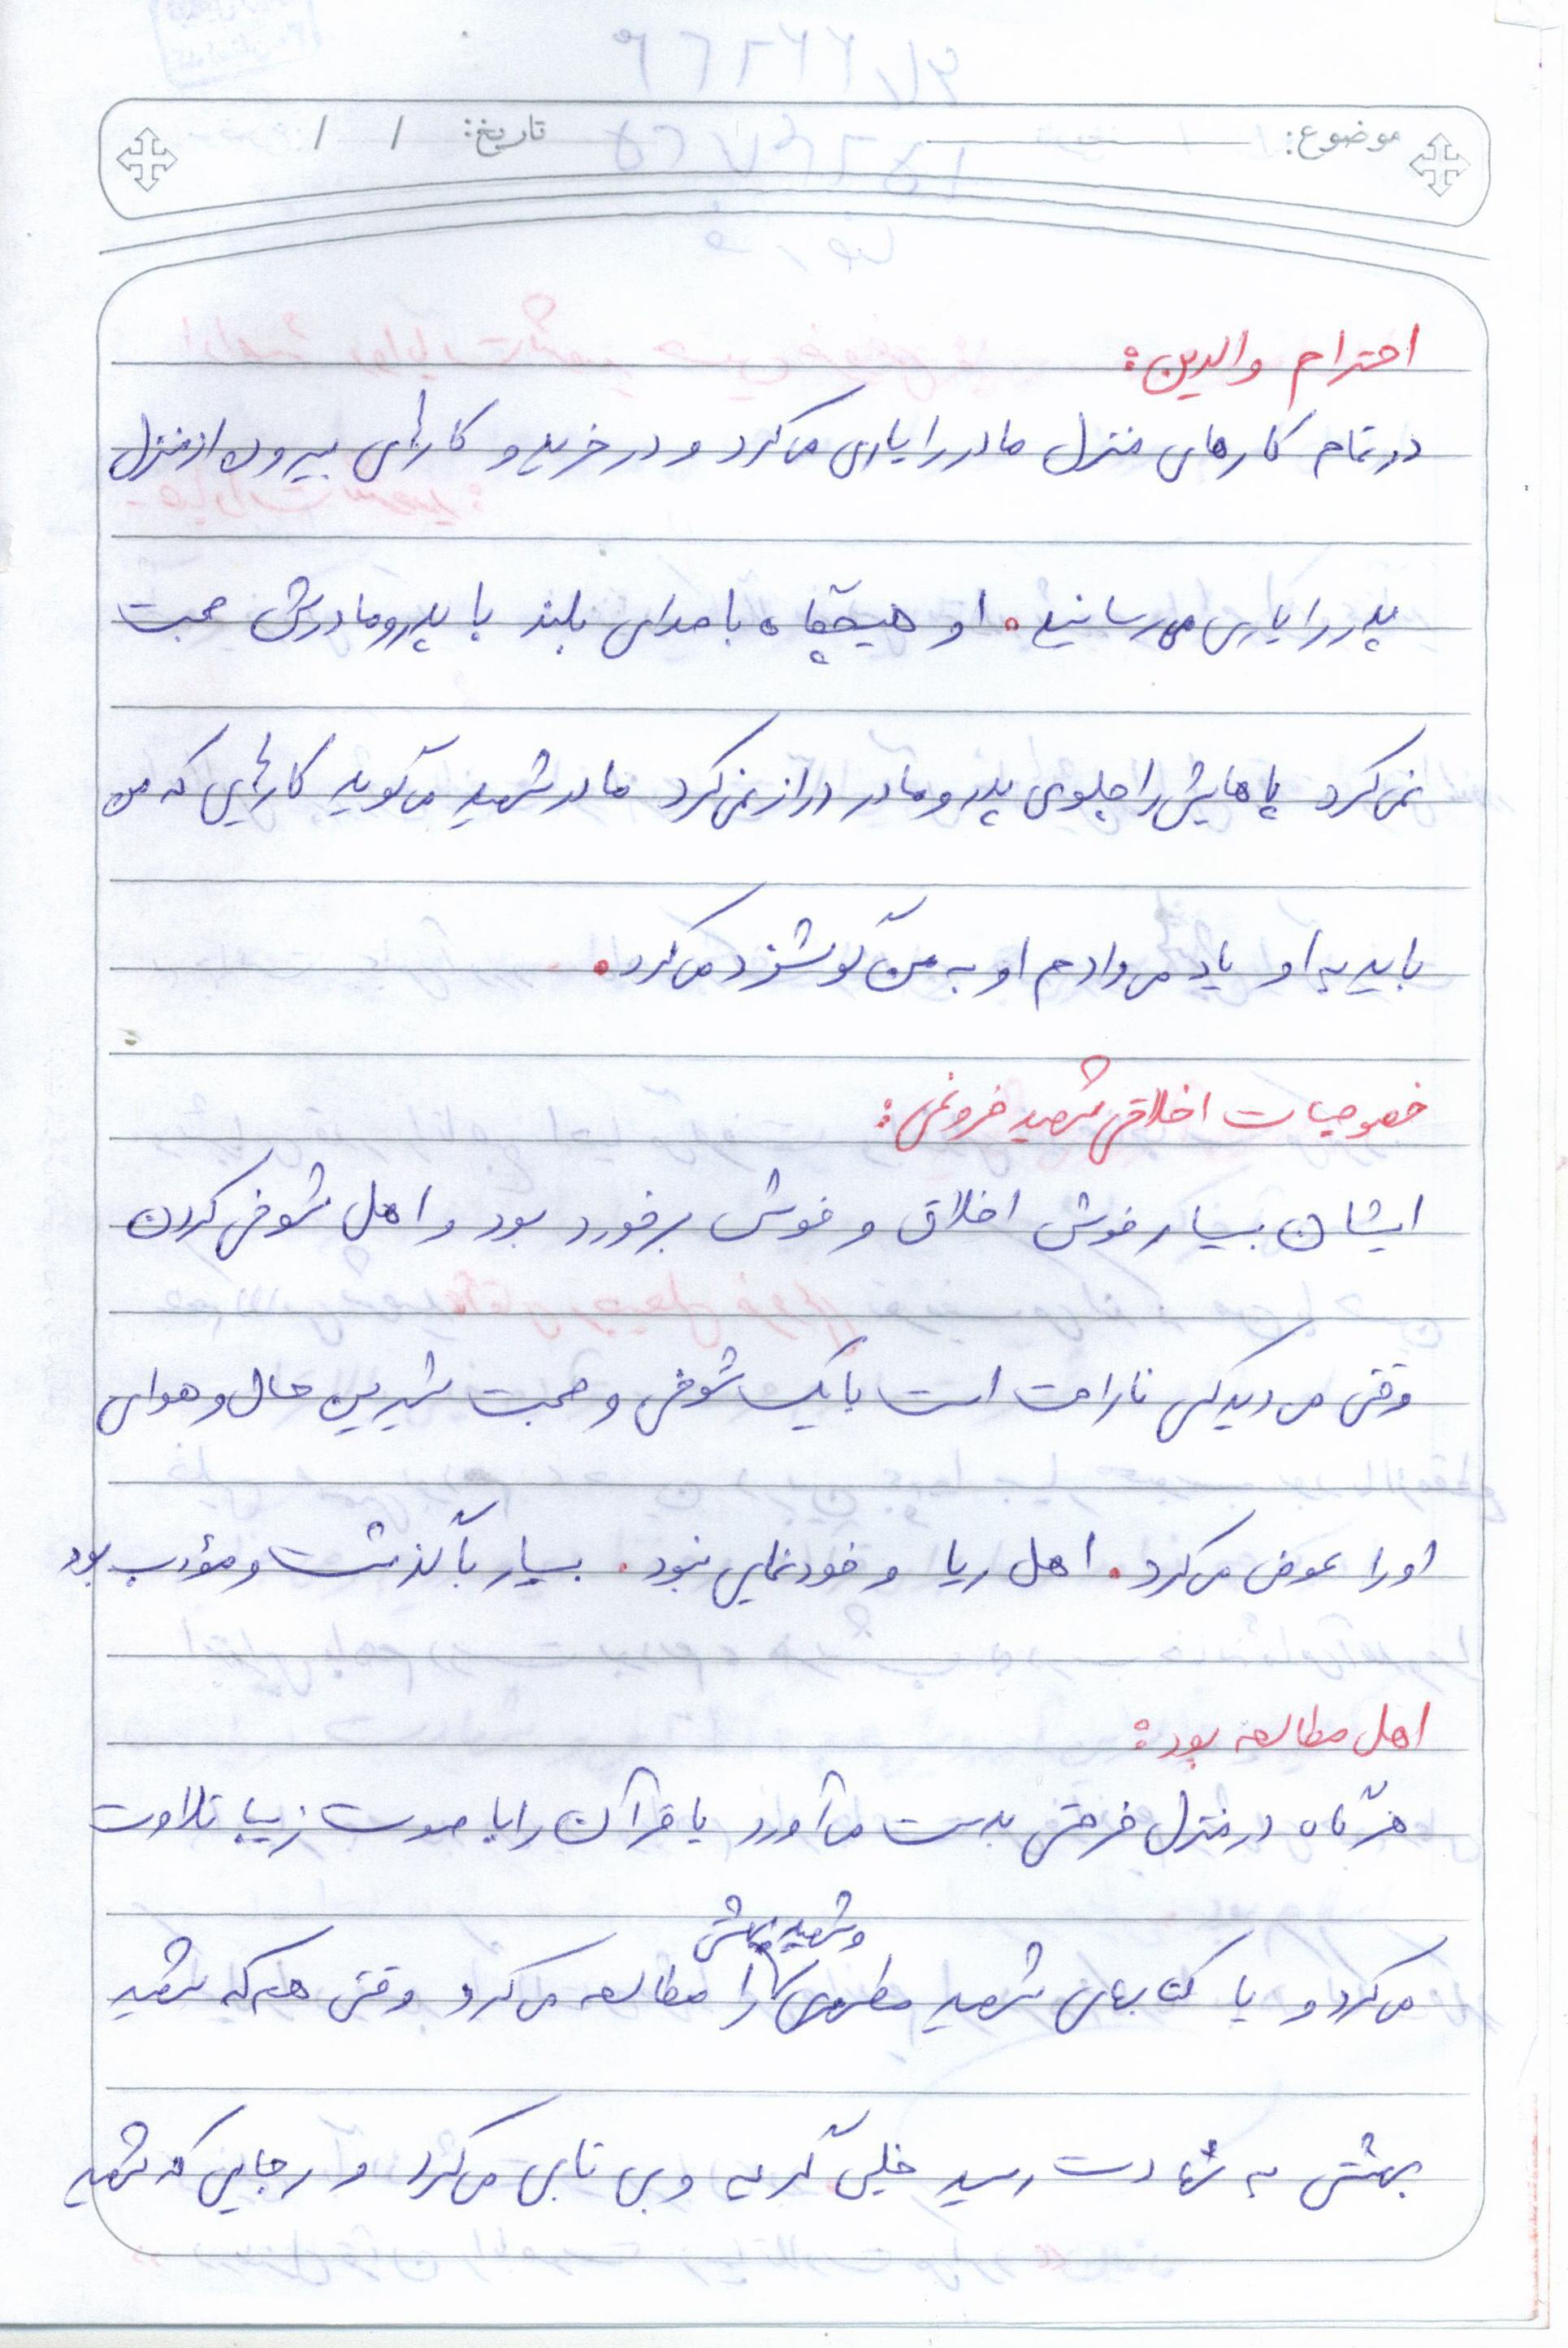 موضوع: تاریخ: / /
احترام والدین:
در تمام کارهای منزل مادر را یاری می کرد و در خرید و کارهای بیرون از منزل
پدر را یاری می رسانید. او هیچگاه با صدای بلند با پدر و مادرش صحبت
نمی کرد پاهایش را جلوی پدر و مادر دراز نمی کرد مادر شهید می گوید کارهایی که من
باید به او یاد می دادم او به من گوشزد می کرد.
خصوصیات اخلاقی شهید فروغی:
ایشان بسیار خوش اخلاق و خوش برخورد بود و اهل شوخی کردن
وقتی می دید کسی ناراحت است با یک شوخی و صحبت شیرین حال و هوای
او را عوض می کرد. اهل ریا و خودنمایی نبود. بسیار با گذشت و مؤدب بود
اهل مطالعه بود:
هرگاه در منزل فرصتی بدست می آورد یا قرآن را با صوت زیبا تلاوت
و شهید بهشتی
می کرد و یا کتابهای شهید مطهری را مطالعه می کرد وقتی هم که شهید
بهشتی به شهادت رسید خیلی گریه و بی تابی می کرد و رجایی که شهید